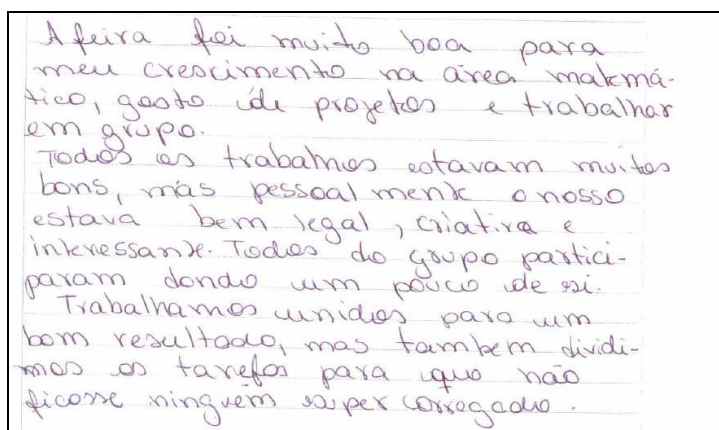 A feira foi muito boa para
meu crescimento na área matemá-
tico, gosto de projetos e trabalhar
em grupo.
Todos os trabalhos estavam muitos
bons, mas pessoalmente o nosso
estava bem legal, criativa e
interessante. Todos do grupo partici-
param dando um pouco de si.
Trabalhamos unidos para um
bom resultado, mas também dividi-
mos as tarefas para que não
ficasse ninguém super carregado.